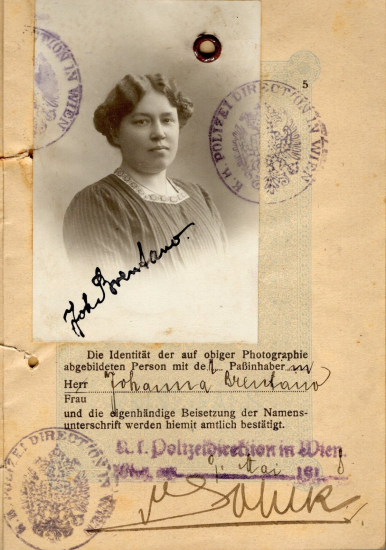 5
K. K. POLIZEI DIRECTION IN WIEN
Joh Brentano.
Die Identität der auf obiger Photographie
abgebildeten Person mit de r Paßinhaber in
Herr Johanna Brentano
Frau
und die eigenhändige Beisetzung der Namens-
unterschrift werden hiemit amtlich bestätigt.
K. k. Polizeidirektion in Wien
Mai 191
K. K. POLIZEI DIRECTION IN WIEN